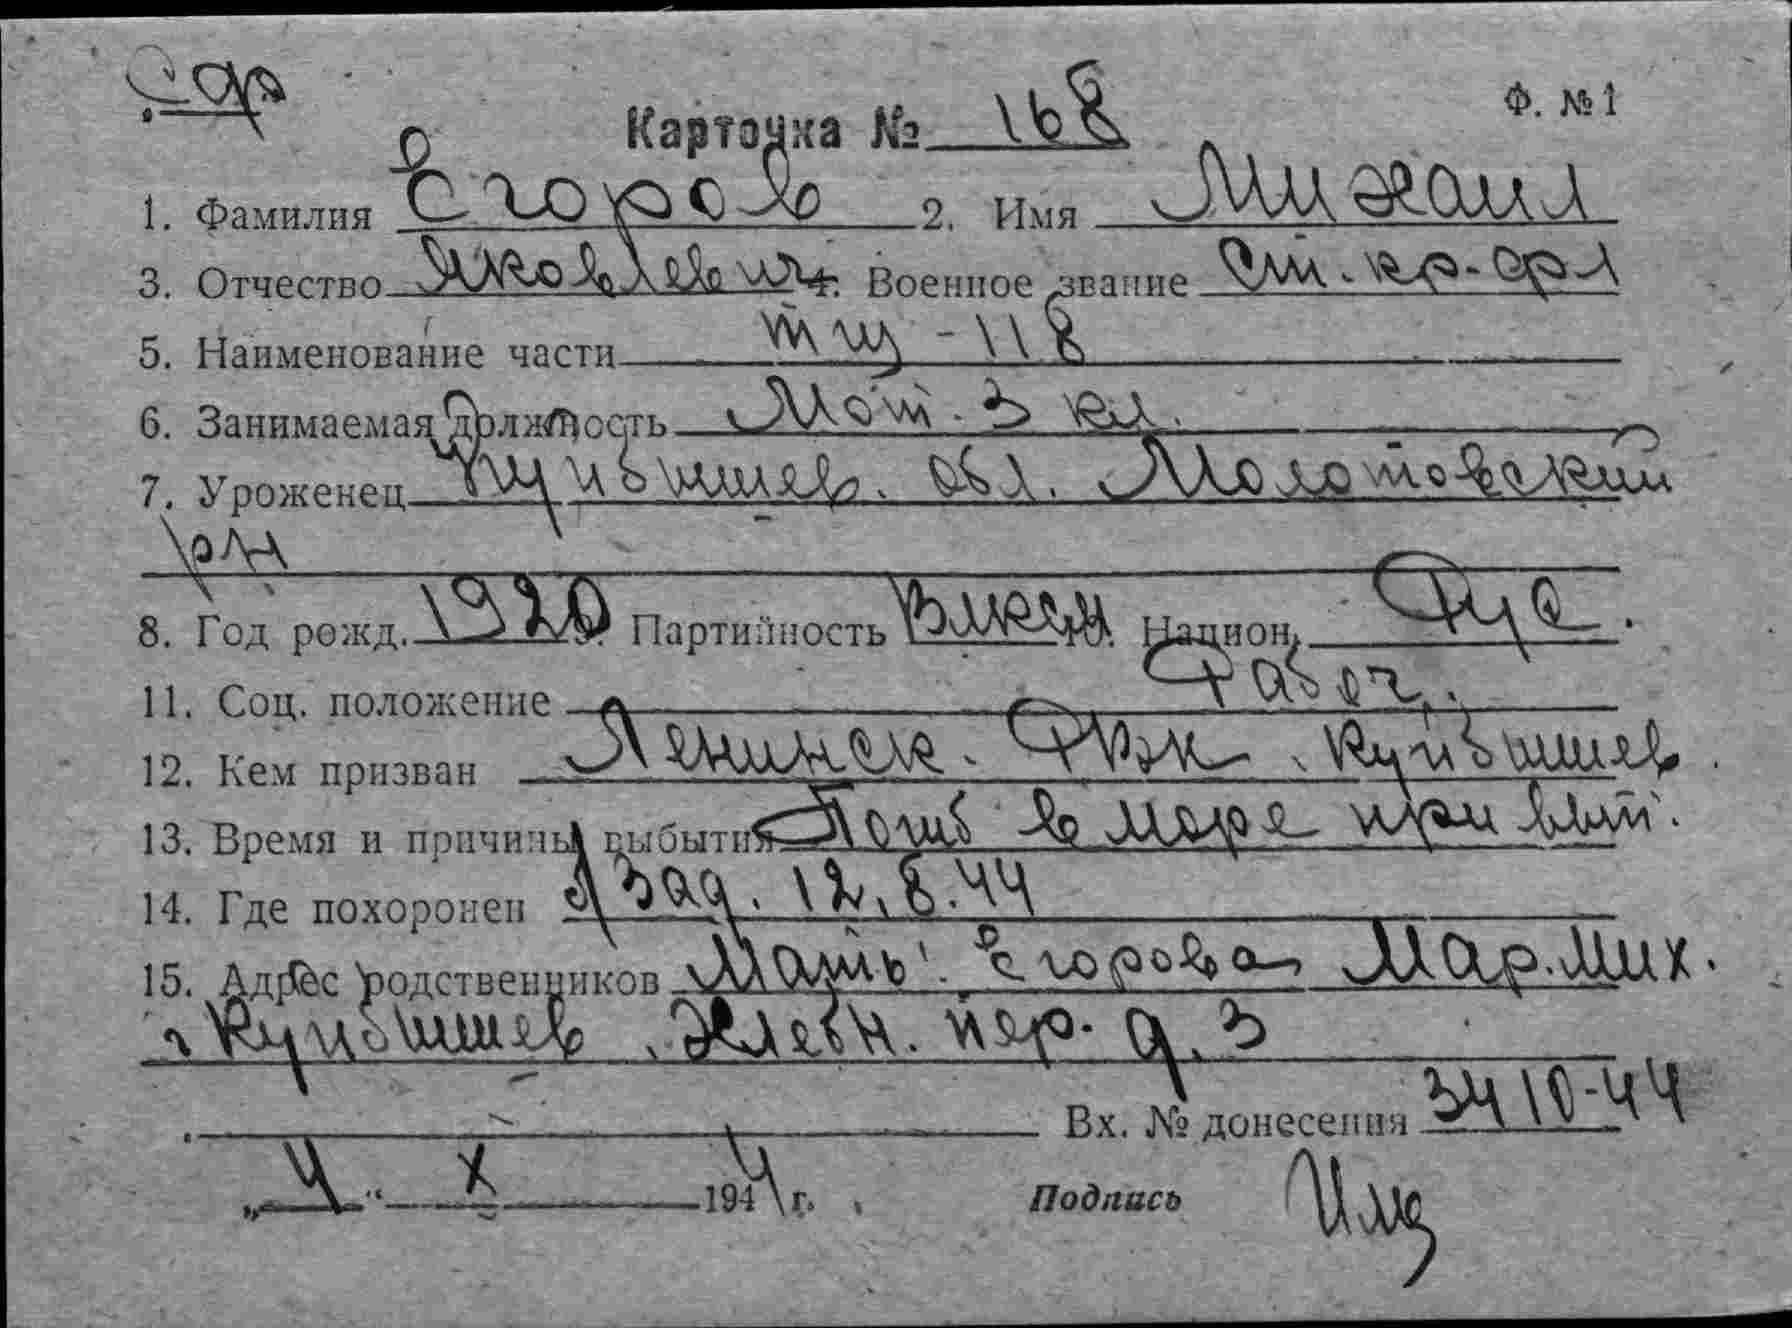 Карточка № 168 Ф. №1
1. Фамилия Егоров 2. Имя Михаил
3. Отчество Яковлевич. Военное звание Ст. кр-фл
5. Наименование части тщ-118
6. Занимаемая должность Мот. 3 кл.
7. Уроженец Куйбышев. обл. Молотовский
р-н
8. Год рожд. 1920 Партийность Национ. Рус.
11. Соц. положение Рабоч.
12. Кем призван Ленинск. РВК г. Куйбышев.
13. Время и причины выбытия Погиб в море при вып.
14. Где похоронен б/зад. 12.8.44
15. Адрес родственников Мать. Егорова Мар. Мих.
г Куйбышев, пер. д. 3
Вх. № донесения 34 10-44
„4“ X 1944 г. Подпись